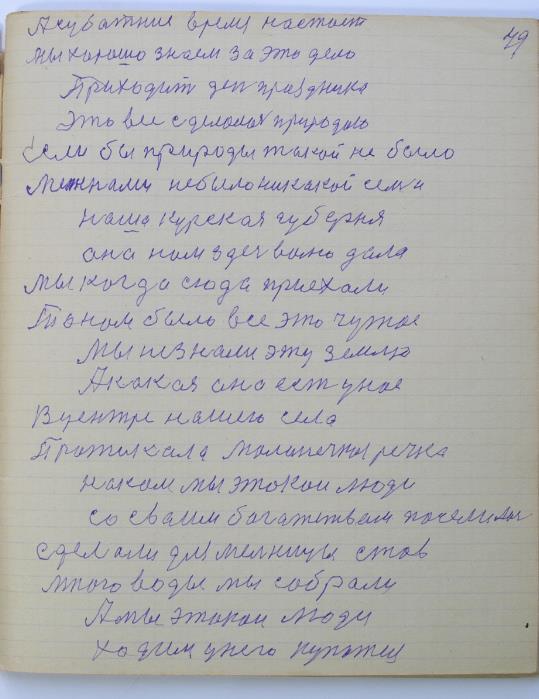 49
А суватние время настоит
мы хорошо знаем за это дело
Приходит ден праздника
Это все сделолоя природою
Если бы природы такой не было
Межнами небыло никакой семи
наша курская губерня
она нам здес волю дала
мы когда сюда приехали
То ном было все это чужое
мы незнали эту землю
А какая она ест у ное
В центре нашего села
Протыкала малинечкоя речка
на ком мы этокои люди
со сваим богатством поселилис
сделали для мелницы став
много воды мы собрали
А мы этокои люди
ходим унего купатец